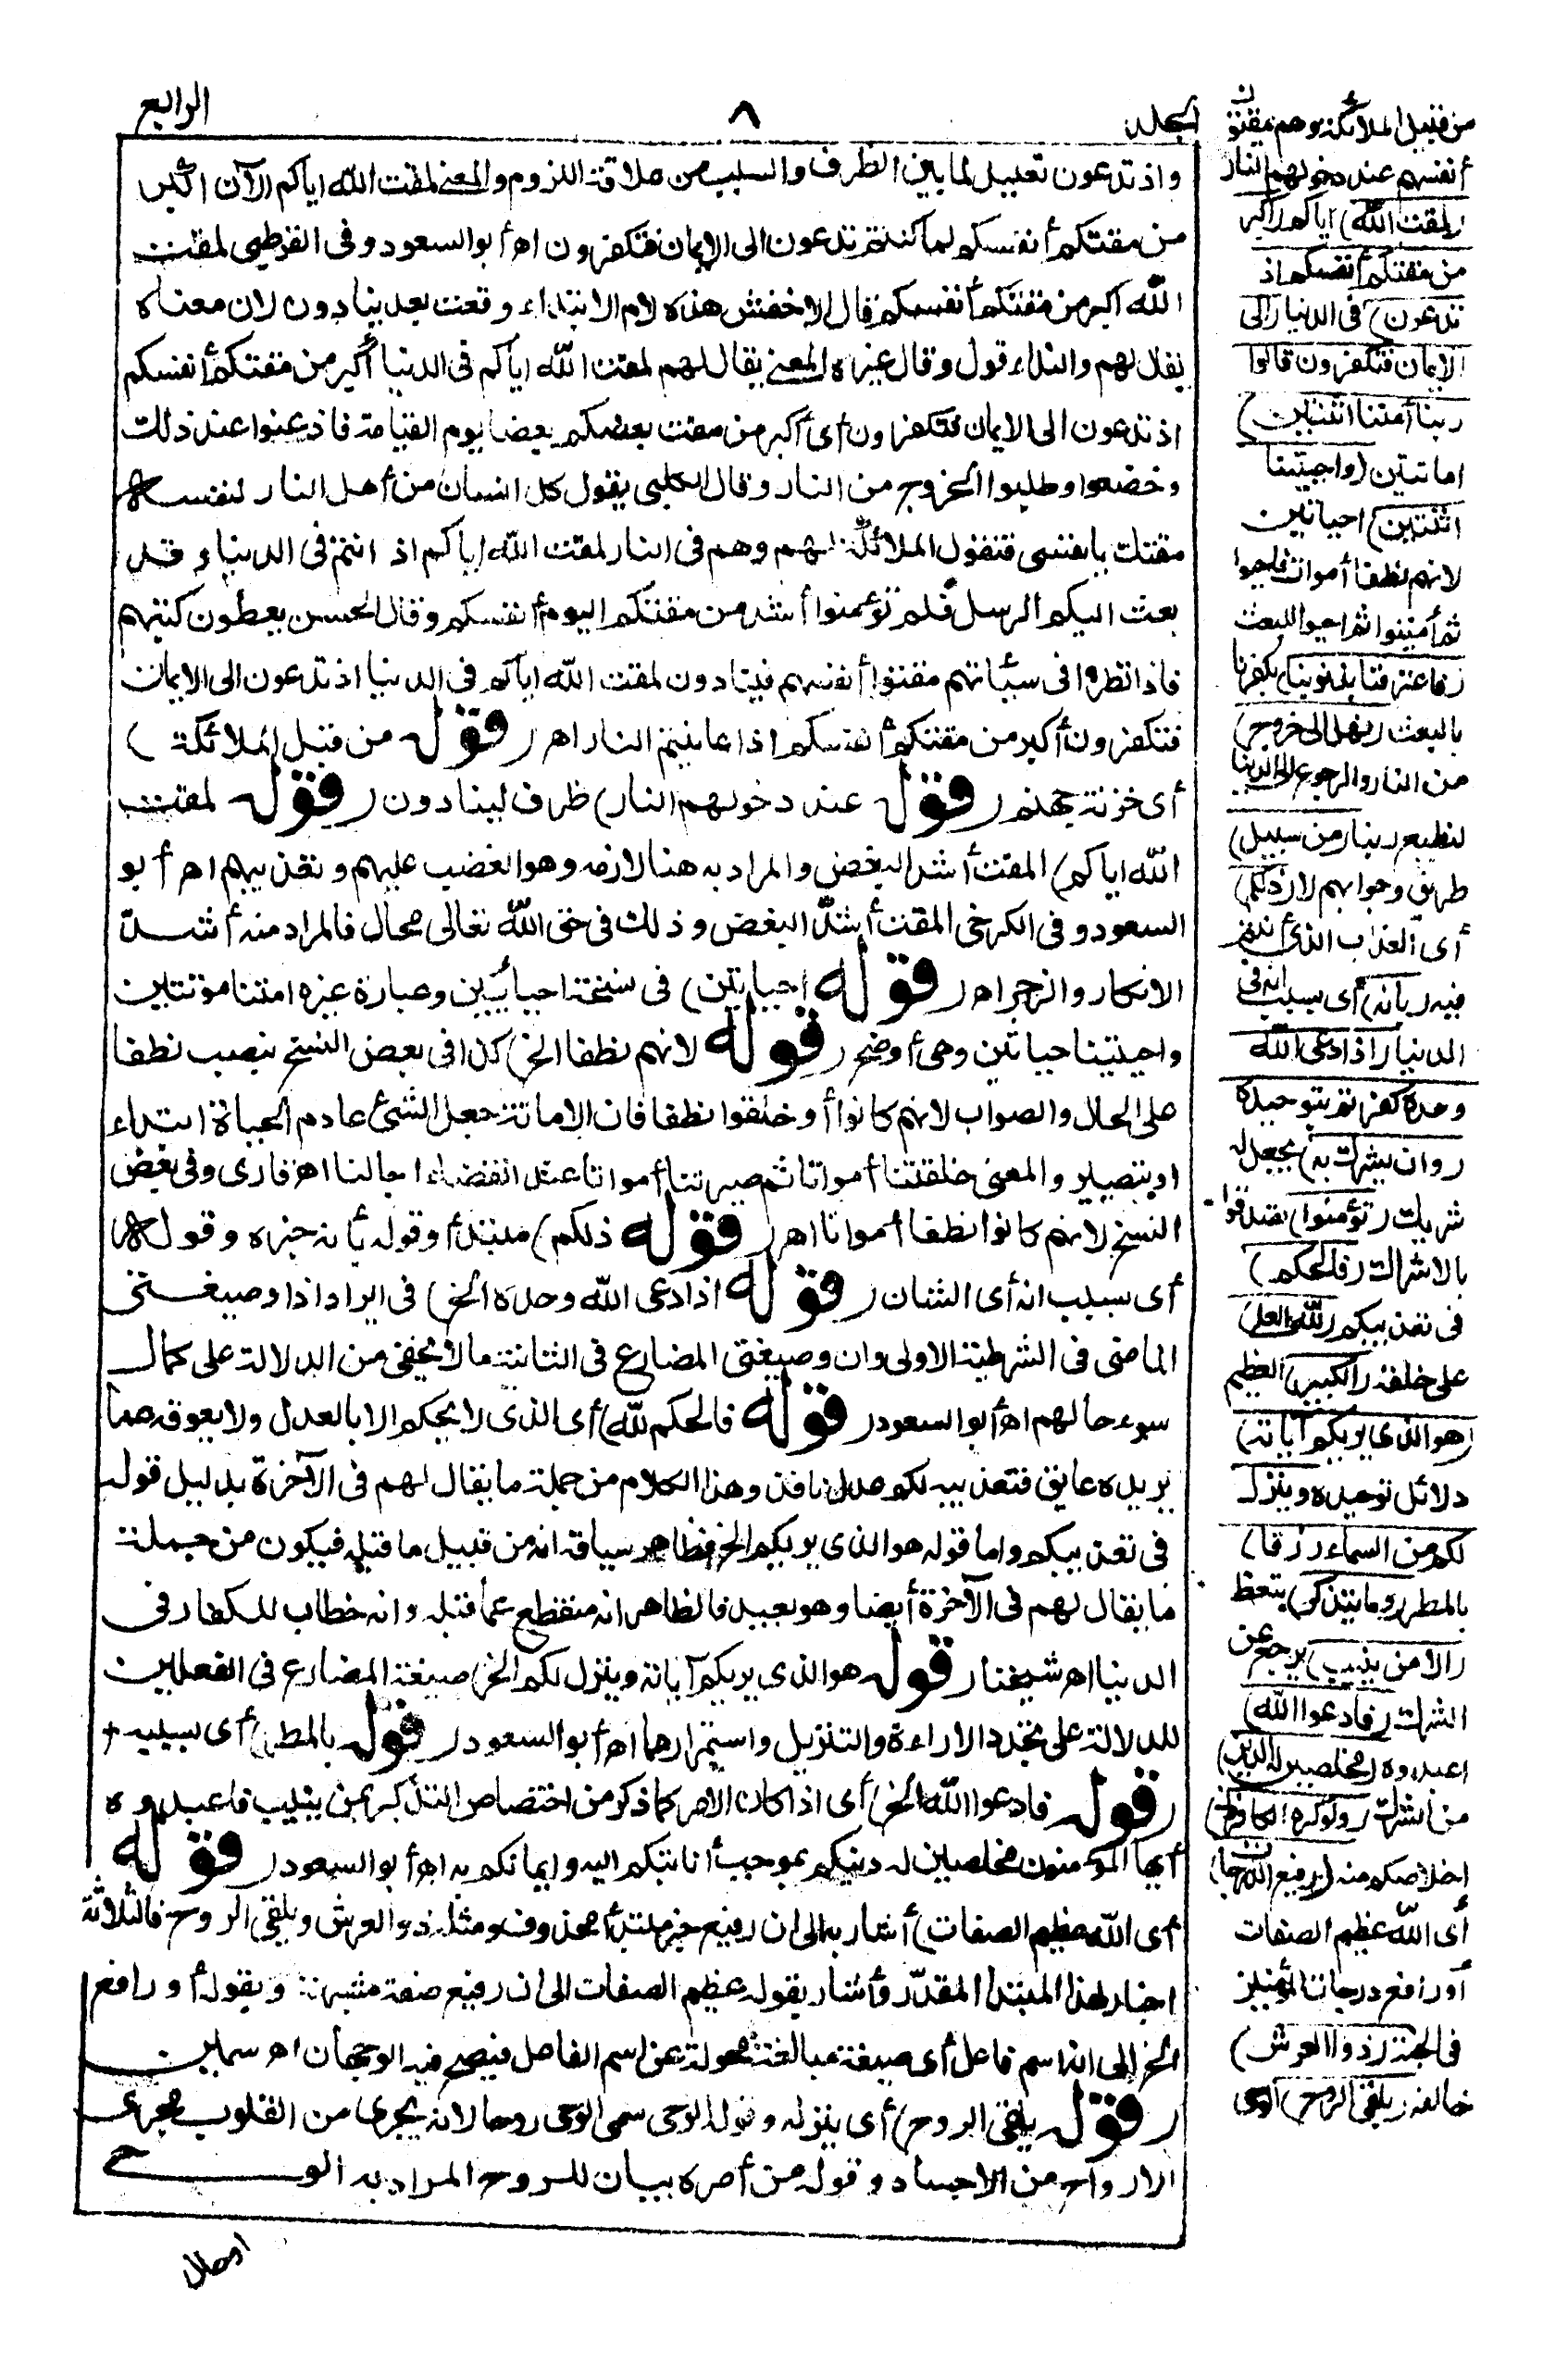 المجلد
٨
الرابع
واذ تدعون تعليل لما بين الظرف والسبب من علاقة اللزوم والمعنى لمقت الله اياكم الآن اكبر
من مقتكم أنفسكم لما كنتم تدعون الى الايمان فتكفرون اهـ أبو السعود وفى القرطبى لمقت
الله اكبر من مقتكم أنفسكم قال الاخفش هذه لام الابتداء وقعت بعد ينادون لان معناه
يقال لهم والنداء قول وقال غيره المعنى يقال لهم لمقت الله اياكم فى الدنيا أكبر من مقتكم أنفسكم
اذ تدعون الى الايمان فتكفرون أى أكبر من مقت بعضكم بعضا يوم القيامة فاذعنوا عند ذلك
وخضعوا وطلبوا الخروج من النار وقال الكلبى يقول كل انسان من أهل النار لنفسه
مقتك يا نفسى فتقول الملائكة لهم وهم فى النار لمقت الله اياكم اذ انتم فى الدنيا وقد
بعث اليكم الرسل فلم تؤمنوا أشد من مقتكم اليوم أنفسكم وقال الحسن يعطون كتبهم
فاذا نظروا فى سيئاتهم مقتوا أنفسهم فينادون لمقت الله اياكم فى الدنيا اذ تدعون الى الايمان
فتكفرون أكبر من مقتكم أنفسكم اذا عاينتم النار اهـ (قوله من قبل الملائكة)
أى خزنة جهنم (قوله عند دخولهم النار) ظرف لينادون (قوله لمقت
الله اياكم) المقت أشد البغض والمراد به هنا لازمه وهو الغضب عليهم وتعذيبهم اهـ أبو
السعود وفى الكرخى المقت أشدّ البغض وذلك فى حق الله تعالى محال فالمراد منه أشدّ
الانكار والزجر اهـ (قوله احياتين) فى نسخة احياءين وعبارة غيره امتنا موتتين
واحييتنا حياتين وهى أوضح (قوله لانهم نطفا الخ) كذا فى بعض النسخ بنصب نطفا
على الحال والصواب لانهم كانوا أو خلقوا نطفا فان الاماتة جعل الشئ عادم الحياة ابتداء
او بتصيير والمعنى خلقتنا أمواتا ثم صيرتنا أمواتا عند انقضاء اجالنا اهـ قارى وفى بعض
النسخ لانهم كانوا نطفا أمواتا اهـ (قوله ذلكم) مبتدأ وقوله بأنه خبره وقوله
أى بسبب انه أى الشان (قوله اذا دعى الله وحده الخ) فى ايراد اذا وصيغتى
الماضى فى الشرطية الاولى وان وصيغتى المضارع فى الثانية ما لا يخفى من الدلالة على كمال
سوء حالهم اهـ أبو السعود (قوله فالحكم لله) أى الذى لا يحكم الا بالعدل ولا يعوقه عما
يريده عايق فتعذيبه لكم عدل نافذ وهذا الكلام من جملة ما يقال لهم فى الآخرة بدليل قوله
فى تعذيبكم واما قوله هو الذى يريكم الخ فظاهر سياقه انه من قبيل ما قبله فيكون من جملة
ما يقال لهم فى الآخرة أيضا وهو بعيد فالظاهر انه منقطع عما قبله وانه خطاب للكفار فى
الدنيا اهـ شيخنا (قوله هو الذى يريكم آياته وينزل لكم الخ) صيغة المضارع فى الفعلين
للدلالة على تجدد الاراءة والتنزيل واستمرارهما اهـ أبو السعود (قوله بالمطر) أى بسببه
(قوله فادعوا الله الخ) أى اذا كان الامر كما ذكر من اختصاص التذكر بمن ينيب فاعبدوه
أيها المؤمنون مخلصين له دينكم بموجب أنابتكم اليه وايمانكم به اهـ أبو السعود (قوله
أى الله عظيم الصفات) أشار به الى ان رفيع خبر مبتدأ محذوف ومثله ذو العرش ويلقى الروح فالثلاثة
اخبار لهذا المبتدا المقدّر وأشار بقوله عظيم الصفات الى ان رفيع صفة مشبهة وبقوله أو رافع
الخ الى انه اسم فاعل أى صيغة مبالغة محولة عن اسم الفاعل فيصح فيه الوجهان اهـ سمين
(قوله يلقى الروح) أى ينزله وقوله الوحى سمى الوحى روحا لانه يجرى من القلوب مجرى
الارواح من الاجساد وقوله من أمره بيان للروح المراد به الوحى
من قبل الملائكة وهم يمقتون
أنفسهم عند دخولهم النار
(لمقت الله) اياكم (اكبر
من مقتكم أنفسكم اذ
تدعون) فى الدنيا (الى
الايمان فتكفرون قالوا
ربنا أمتنا اثنتين)
اماتتين (واحييتنا
اثنتين) احياتين
لانهم نطفا أموات فاحيوا
ثم أميتوا ثم احيوا للبعث
(فاعترفنا بذنوبنا) بكفرنا
بالبعث (فهل الى خروج)
من النار والرجوع الى الدنيا
لنطيع ربنا (من سبيل)
طريق وجوابهم لا (ذلكم)
أى العذاب الذى أنتم
فيه (بأنه) أى بسبب انه فى
الدنيا (اذا دعى الله
وحده كفرتم) بتوحيده
(وان يشرك به) يجعل له
شريك (تؤمنوا) تصدقوا
بالاشراك (فالحكم)
فى تعذيبكم (لله العلى)
على خلقه (الكبير) العظيم
(هو الذى يريكم آياته)
دلائل توحيده (وينزل
لكم من السماء رزقا)
بالمطر (وما يتذكر) يتعظ
(الا من ينيب) يرجع عن
الشرك (فادعوا الله)
اعبدوه (مخلصين له الدين)
من الشرك (ولو كره الكافرون)
اخلاصكم منه (رفيع الدرجات)
أى الله عظيم الصفات
أو رافع درجات المؤمنين
فى الجنة (ذو العرش)
خالقه (يلقى الروح) الوحى